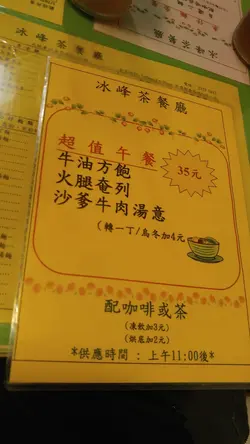 冰峰茶餐廳
冰峰茶餐廳
冰峰茶餐廳
超值午餐
35元
牛油方飽
火腿奄列
沙爹牛肉湯意
(轉一丁/烏冬加4元)
配咖啡或茶
(凍飲加3元)
(烘底加2元)
*供應時間：上午11:00後*